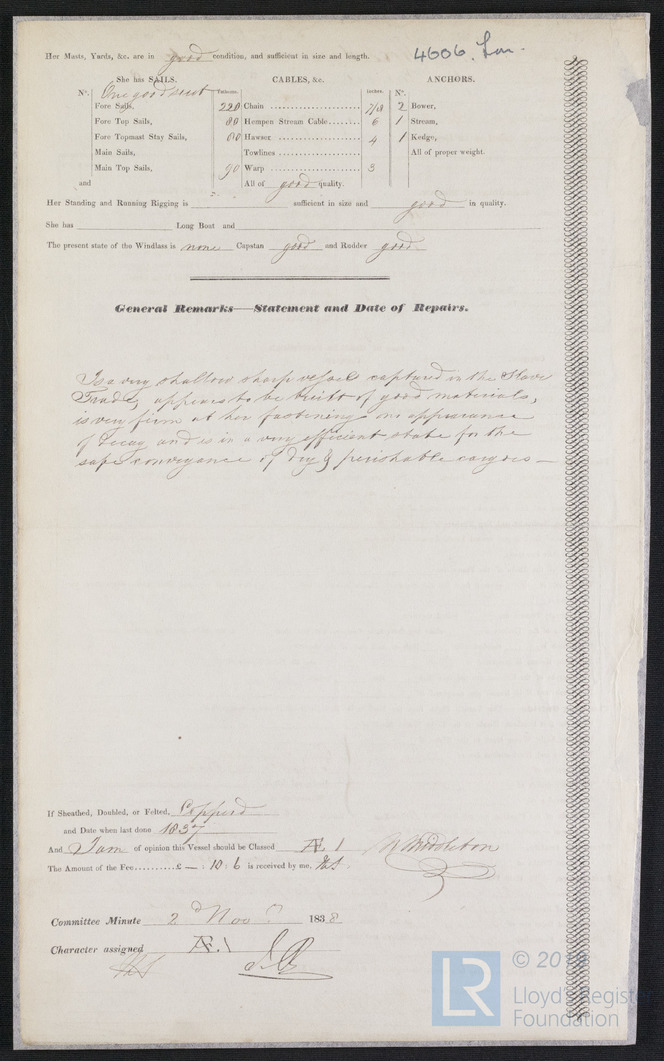 Her Masts, Yards, &c. are in good condition, and sufficient in size and length.
4606. Lon.
She has SAILS. CABLES, &c. ANCHORS.
N°. One good suit Fathoms. Inches. N°.
Fore Sails, 220 Chain 7/8 2 Bower,
Fore Top Sails, 80 Hempen Stream Cable 6 1 Stream,
Fore Topmast Stay Sails, 80 Hawser 4 1 Kedge,
Main Sails, Towlines All of proper weight.
Main Top Sails, 90 Warp 3
and All of good quality.
Her Standing and Running Rigging is sufficient in size and good in quality.
She has Long Boat and
The present state of the Windlass is none Capstan good and Rudder good.
General Remarks—Statement and Date of Repairs.
Is a very shallow sharp vessel captured in the Slave
Trade, appears to be built of good materials,
is very firm at her fastenings no appearance
of Decay and is in a very efficient state for the
safe conveyance of dry & perishable cargoes —
If Sheathed, Doubled, or Felted, Copperd
and Date when last done 1837
And I am of opinion this Vessel should be Classed Æ. 1 Middleton
The Amount of the Fee £ — : 10 : 6 is received by me,
Committee Minute 2d Nov 1838
Character assigned Æ. 1
LR © 2019
Lloyd's Register
Foundation